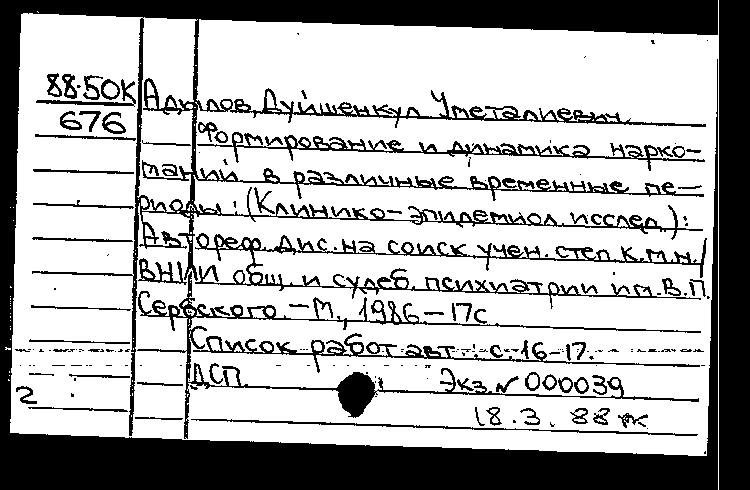 88-50К
676
Адылов, Дуйшенкул Уметалиевич.
Формирование и динамика нарко-
маний в различные временные пе-
риоды: (Клинико-эпидемиол. исслед.):
Автореф. дис. на соиск. учен. степ. к.м.н./
ВНИИ общ. и судеб. психиатрии им. В.П.
Сербского. - М., 1986. - 17с.
Список работ авт.: с. 16-17.
ДСП. Экз. № 000039
2
18.3. 88 ж